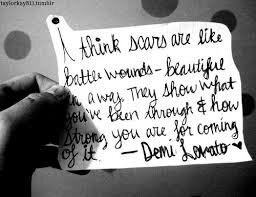 taylorkay811.tumblr
I think scars are like
battle wounds - beautiful
in a way. They show what
you've been through & how
strong you are for coming
of it. - Demi Lovato